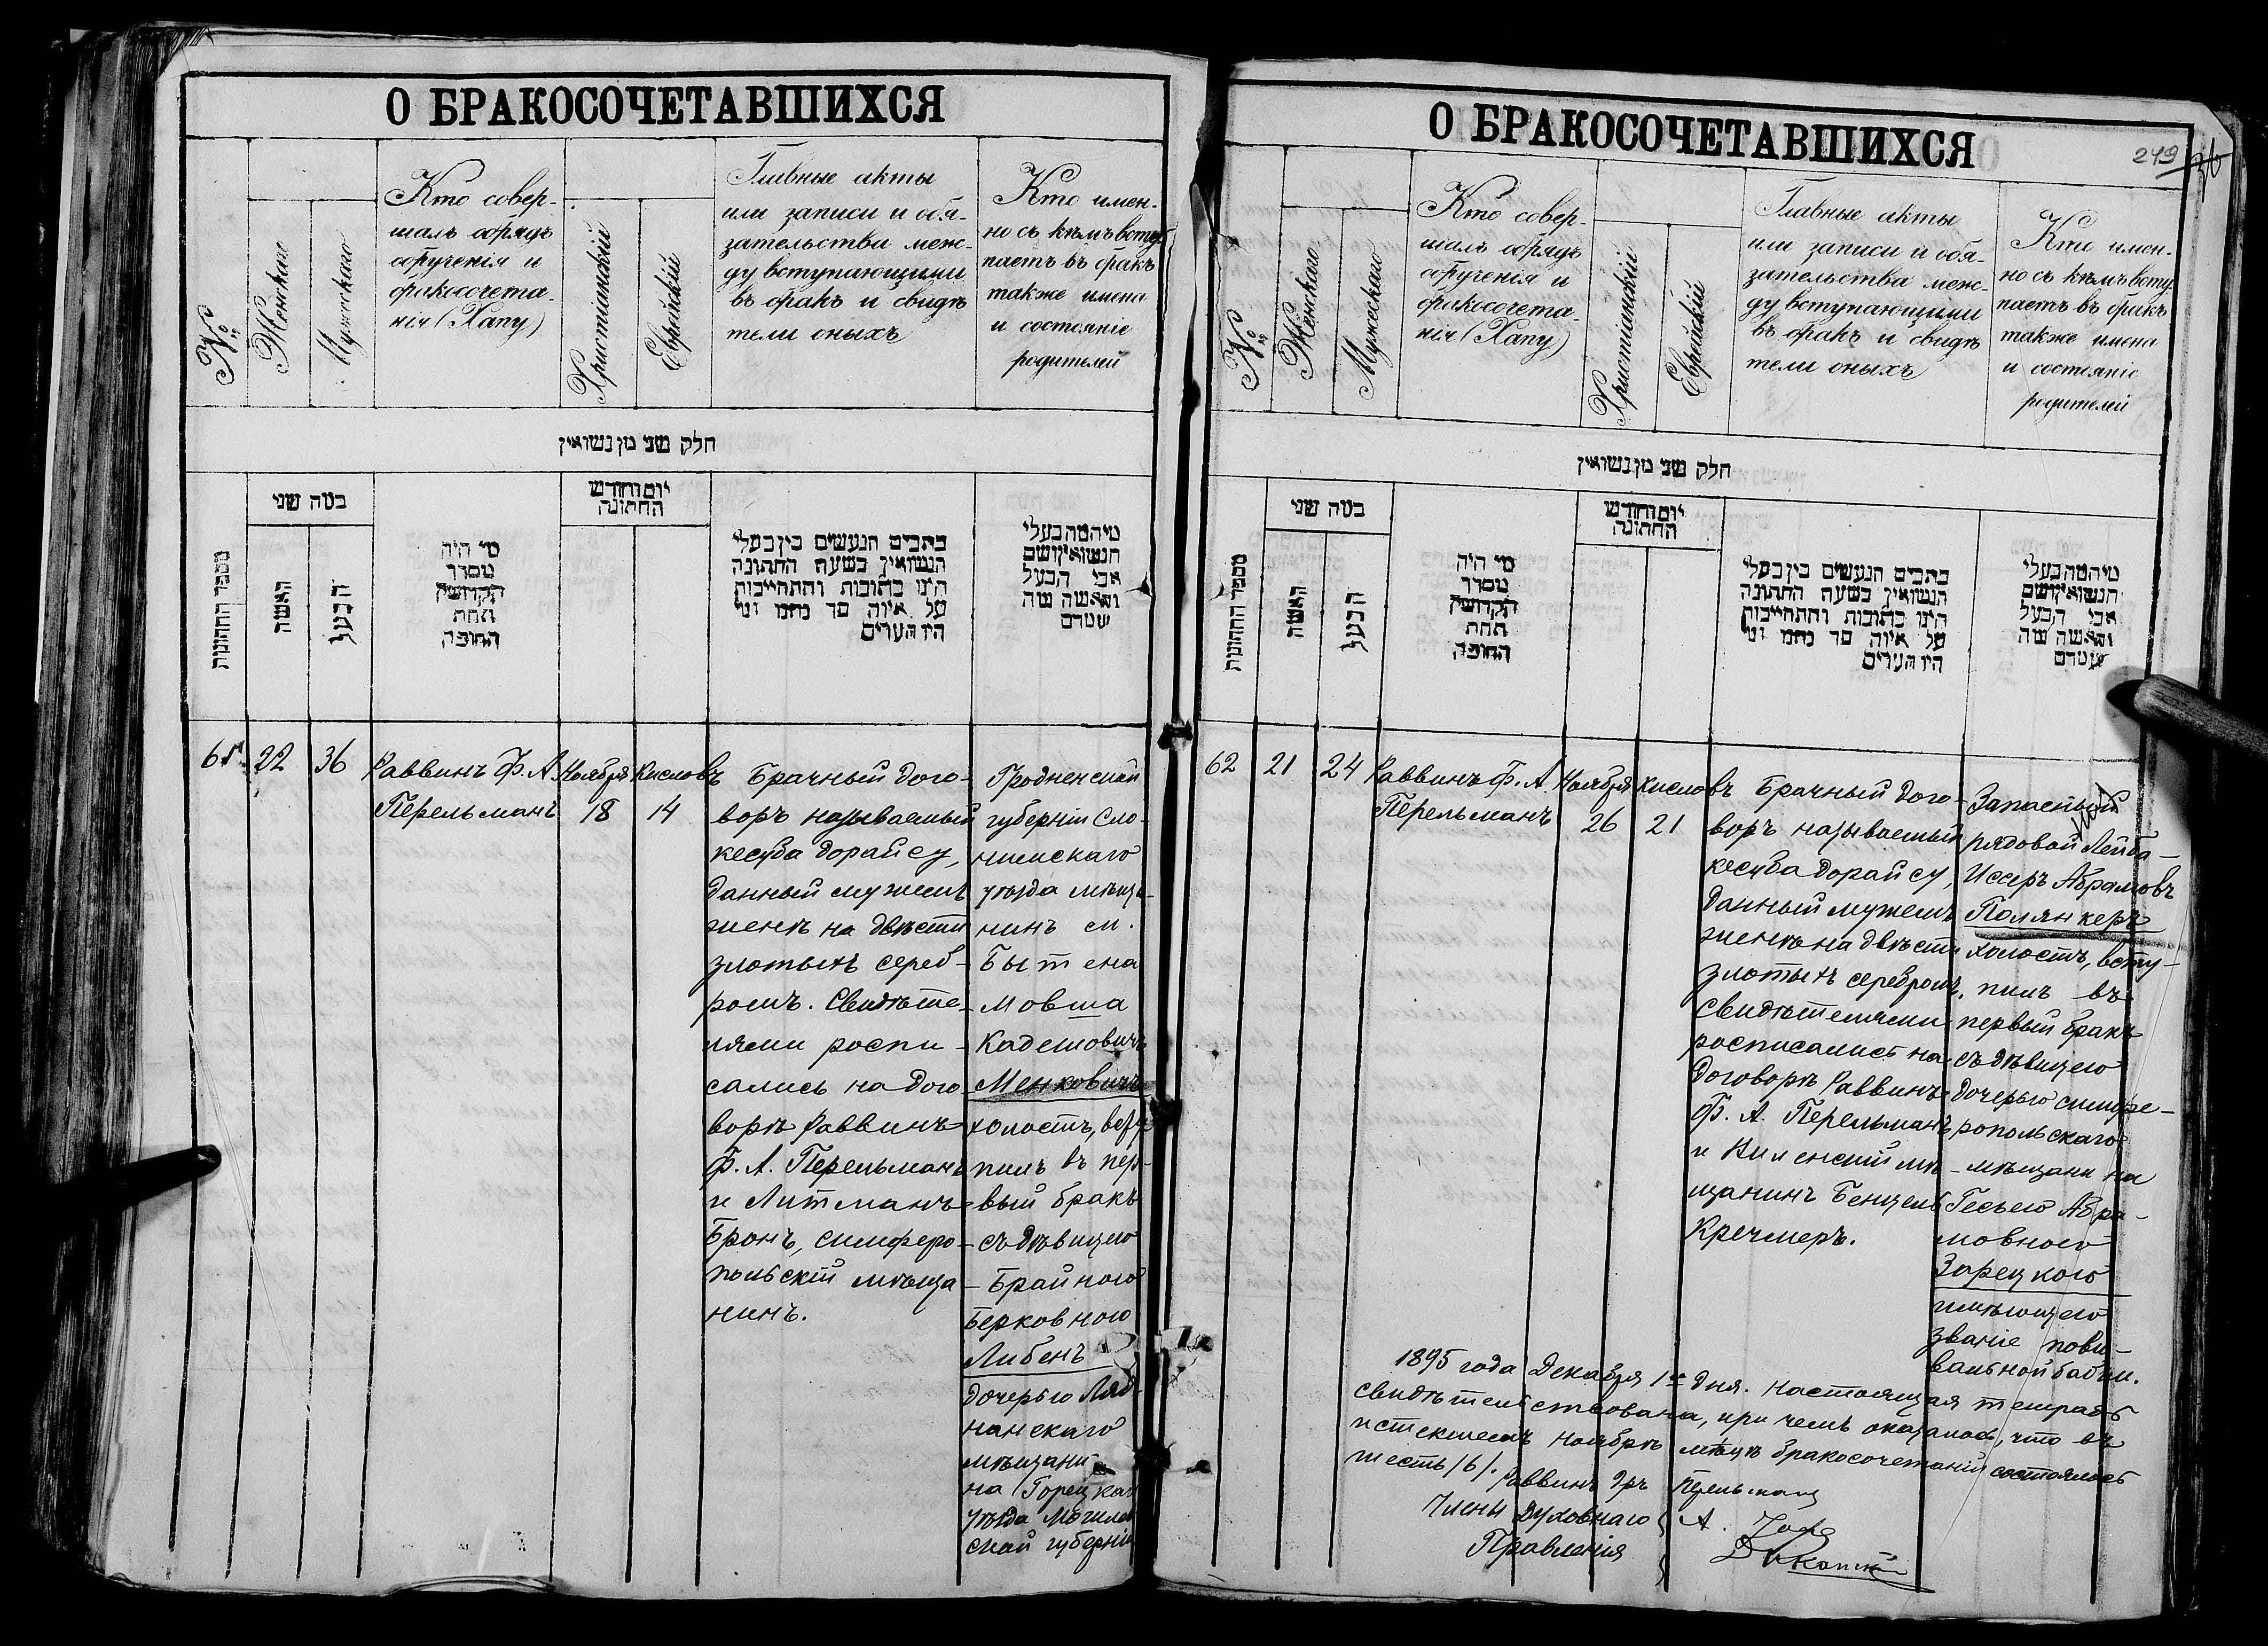 О БРАКОСОЧЕТАВШИХСЯ
№
Женскаго
Мужескаго
Кто совер-
шалъ обрядъ
обрученія и
бракосочета-
нія (Хапу)
Христіанскій
Еврейскій
Главные акты
или записи и обя-
зательства меж-
ду вступающими
въ бракъ и свидѣ
тели оныхъ
Кто имен-
но съ кѣмъ всту
паетъ въ бракъ
также имена
и состояніе
родителей
חלק שני מן נשואין
מספר החתונות
כמה שני
האשה
הבעל
מי היה
מסדר
הקדושין
תחת
החופה
יום וחודש
החתונה
כתבים הנעשים בין בעלי
הנשואין בשעת החתונה
היינו כתובות והתחייבות
על איזה סך נתנו ומי
היו העדים
מיהמה בעלי
הנשואין ושם
אבי הבעל
והאשה ומה
61
22
36
Раввинъ Ф. А.
Перельманъ
Ноября
18
Кисловъ
14
Брачный дого-
воръ называемый
кесуба дорайсу,
данный мужемъ
женѣ на двѣсти
злотыхъ сереб-
ромъ. Свидѣте-
лями роспи-
сались на дого
ворѣ Раввинъ
Ф. А. Перельманъ
и Литманъ
Бронъ, симферо-
польскій мѣща-
нинъ.
Гродненской
губерніи Сло-
нимскаго
уѣзда мѣща-
нинъ м.
Бытена
Мовша
Кадешовичъ
Менковичъ
холостъ, всту
пилъ въ пер-
вый бракъ
съ дѣвицею
Брайною
Берковною
Либенъ
дочерью Ляд-
нянскаго
мѣщани-
на Горецкаго
уѣзда Могилев
ской губерніи
О БРАКОСОЧЕТАВШИХСЯ
249
№
Женскаго
Мужескаго
Кто совер-
шалъ обрядъ
обрученія и
бракосочета-
нія (Хапу)
Христіанскій
Еврейскій
Главные акты
или записи и обя-
зательства меж-
ду вступающими
въ бракъ и свидѣ
тели оныхъ
Кто имен-
но съ кѣмъ всту
паетъ въ бракъ
также имена
и состояніе
родителей
חלק שני מן נשואין
מספר החתונות
כמה שני
האשה
הבעל
מי היה
מסדר
הקדושין
תחת
החופה
יום וחודש
החתונה
כתבים הנעשים בין בעלי
הנשואין בשעת החתונה
היינו כתובות והתחייבות
על איזה סך נתנו ומי
היו העדים
מיהמה בעלי
הנשואין ושם
אבי הבעל
והאשה ומה
62
21
24
Раввинъ Ф. А.
Перельманъ
Ноября
26
Кисловъ
21
Брачный дого-
воръ называемый
кесуба дорайсу,
данный мужемъ
женѣ на двѣсти
злотыхъ серебромъ.
Свидѣтелями
росписались на
договорѣ Раввинъ
Ф. А. Перельманъ
и Виленскій мѣ-
щанинъ Бенцель
Кречмеръ.
Запасный
рядовой Лейба-
Иссеръ Абрамовъ
Полянкеръ
холостъ, всту-
пилъ въ
первый бракъ
съ дѣвицею
дочерью симфе-
ропольскаго
мѣщанина
Гесею Абра-
мовною
Зарецкою
имѣющею
званіе пови-
вальной бабки.
1895 года Декабря 1го дня. Настоящая тетрадь
свидѣтельствована, при чемъ оказалось, что въ
истекшемъ ноябрѣ мѣсяцѣ бракосочетаній состоялось
шесть /6/.
Раввинъ Др Перельманъ
Члены Духовнаго
Правленія
А.